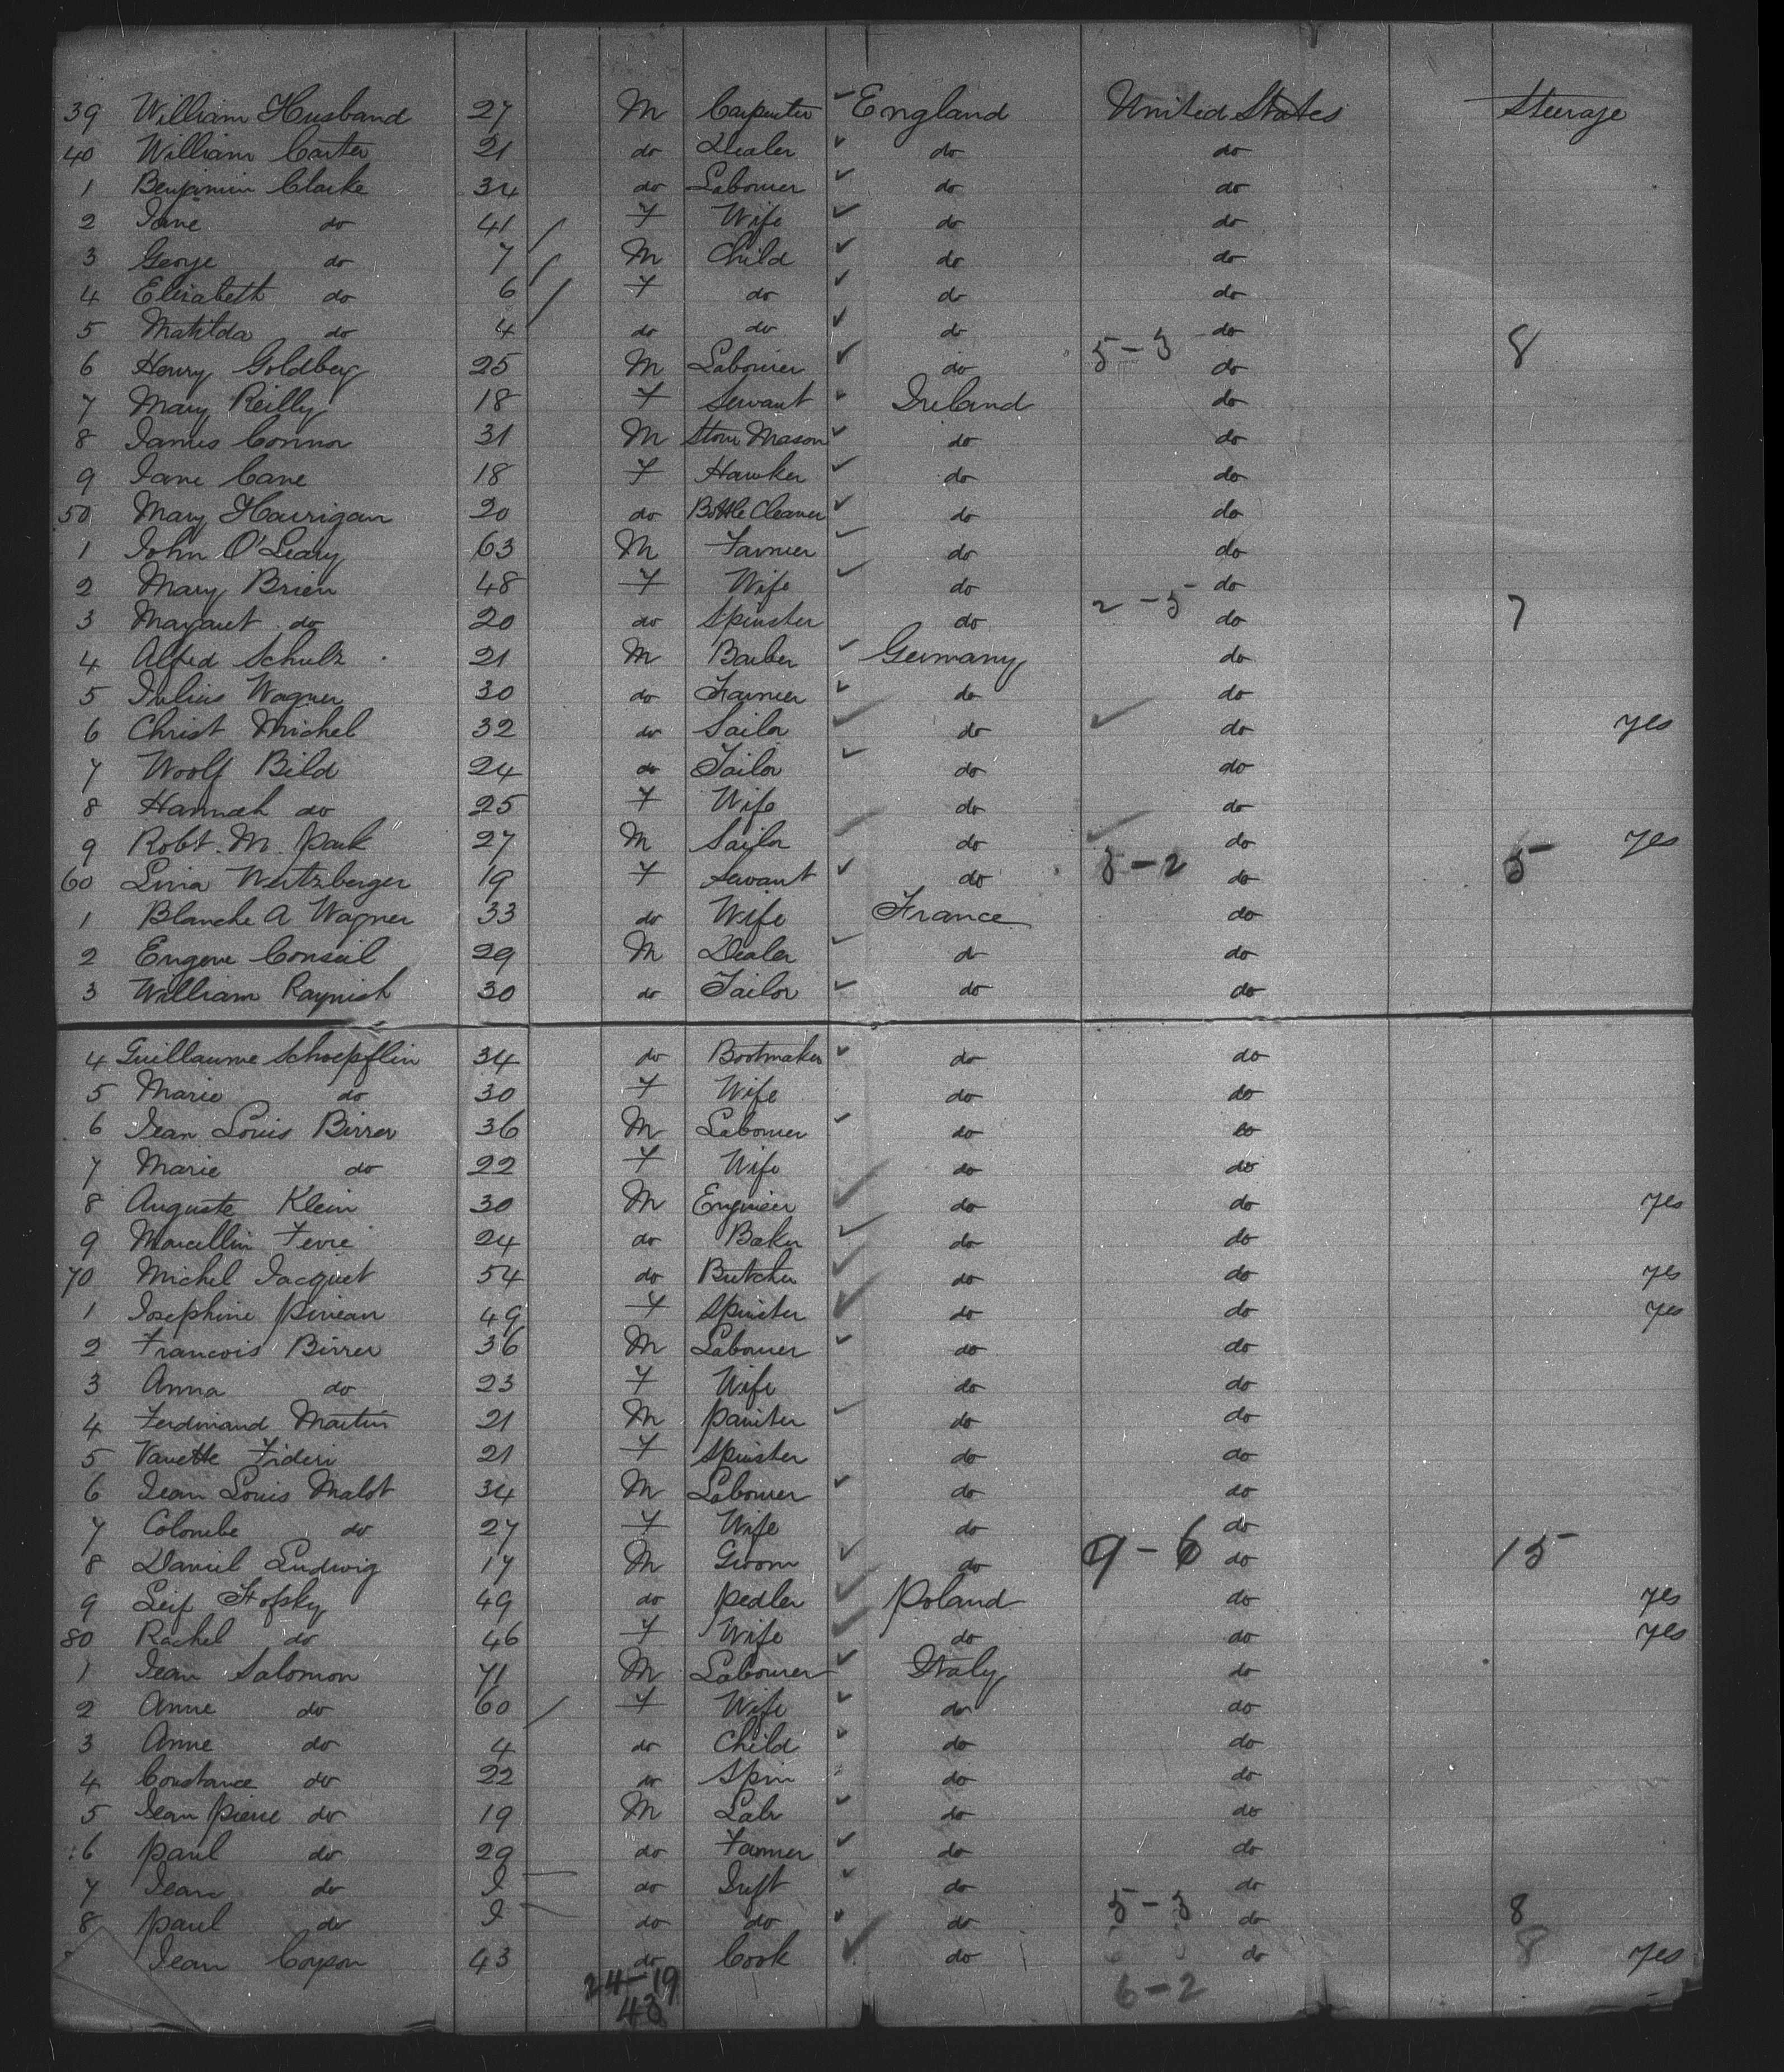 39 William Husband 27 M Carpenter England United States Steerage
40 William Carter 21 do Dealer do do
1 Benjamin Clarke 34 do Labourer do do
2 Jane do 41 F Wife do do
3 George do 7 M Child do do
4 Elizabeth do 6 F do do do
5 Matilda do 4 do do do do
5-3 8
6 Henry Goldberg 25 M Labourer do do
7 Mary Reilly 18 F Servant Ireland do
8 James Connor 31 M Stone Mason do do
9 Jane Cane 18 F Hawker do do
50 Mary Hourigan 20 do Bottle Cleaner do do
1 John O'Leary 63 M Farmer do do
2 Mary Brien 48 F Wife do do
2-5 7
3 Margaret do 20 do Spinster do do
4 Alfred Schulz 21 M Barber Germany do
5 Julius Wagner 30 do Farmer do do
6 Christ Michel 32 do Sailor do do yes
7 Woolf Bild 24 do Tailor do do
8 Hannah do 25 F Wife do do
9 Robt. M. Park 27 M Sailor do do yes
3-2 5
60 Lina Wertzberger 19 F Servant do do
1 Blanche A Wagner 33 do Wife France do
2 Eugene Conseil 29 M Dealer do do
3 William Raynish 30 do Tailor do do
4 Guillaume Schoepflin 34 do Bootmaker do do
5 Marie do 30 F Wife do do
6 Jean Louis Birrer 36 M Labourer do do
7 Marie do 22 F Wife do do
8 Auguste Klein 30 M Engineer do do yes
9 Marcellin Fevre 24 do Baker do do
70 Michel Jacquet 54 do Butcher do do yes
1 Josephine Pineau 49 F Spinster do do yes
2 Francois Birrer 36 M Labourer do do
3 Anna do 23 F Wife do do
4 Ferdinand Martin 21 M Painter do do
5 Vanette Fideri 21 F Spinster do do
6 Jean Louis Malot 34 M Labourer do do
7 Colombe do 27 F Wife do do
9-6 15
8 Daniel Ludwig 17 M Groom do do
9 Leif 49 do Pedler Poland do yes
80 Rachel do 46 F Wife do do yes
1 Jean Salomon 71 M Labourer Italy do
2 Anne do 60 F Wife do do
3 Anne do 4 do Child do do
4 Constance do 22 do Spin do do
5 Jean Pierre do 19 M Labr do do
6 Paul do 29 do Farmer do do
7 Jean do I do Inft do do
5-3 8
8 Paul do I do do do do
Jean Coyson 43 do Cook do do 8 yes
24-19 6-2
43